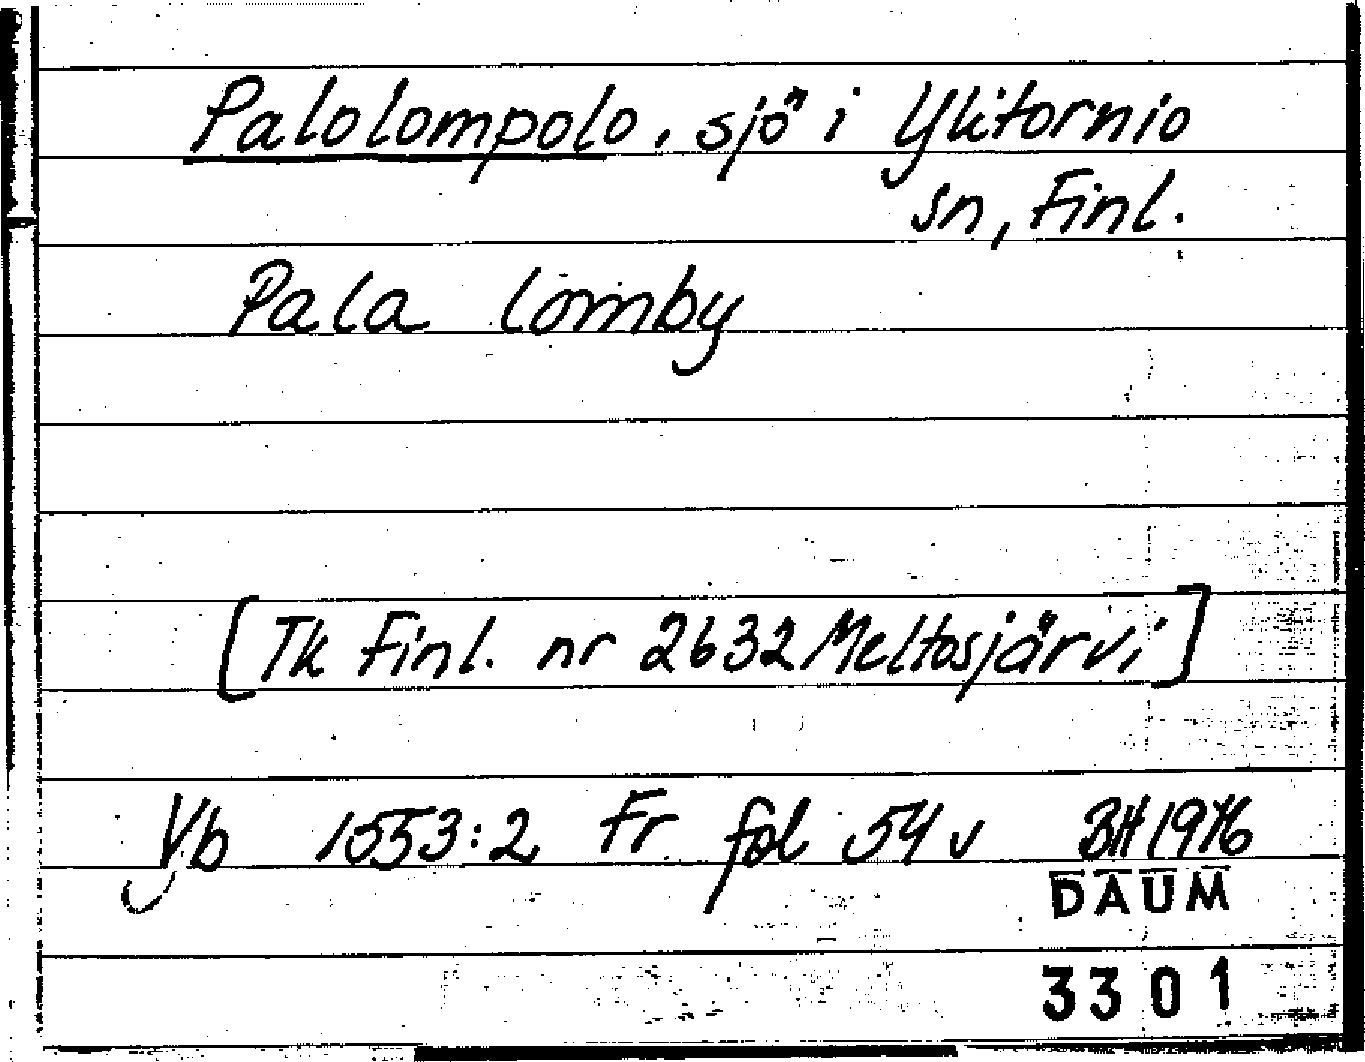 Palolompolo, sjö i Ylitornio
sn, Finl.
Pala lomby
[Tk Finl. nr 2632 Meltosjärvi]
Vb 1553:2 Fr fol 54 v BH 1976
DAUM
3301